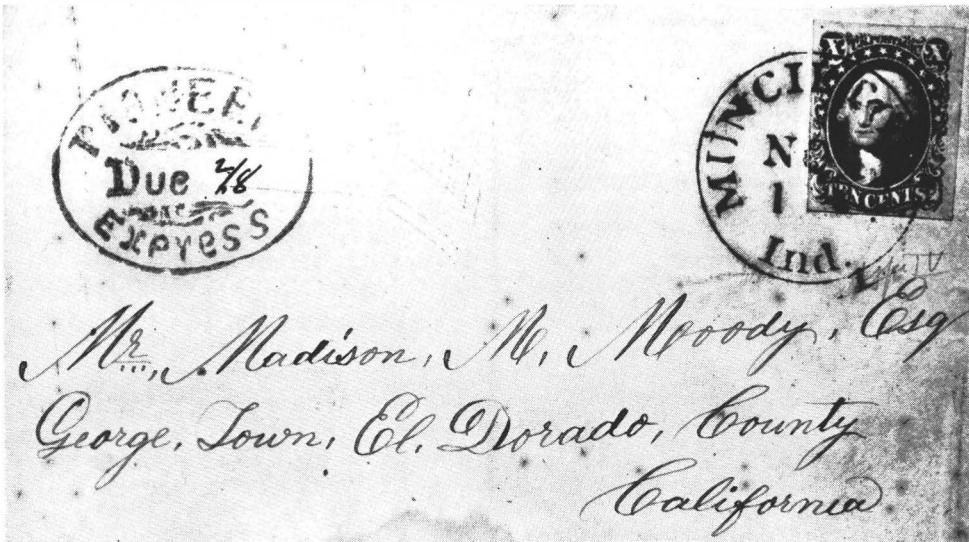 PIONEER
Due 2/8
EXpress
MUNCI
N
1
Ind.
X X
TEN CENTS
Mr., Madison, M, Moody, Esq
George, Town, El, Dorado, County
California